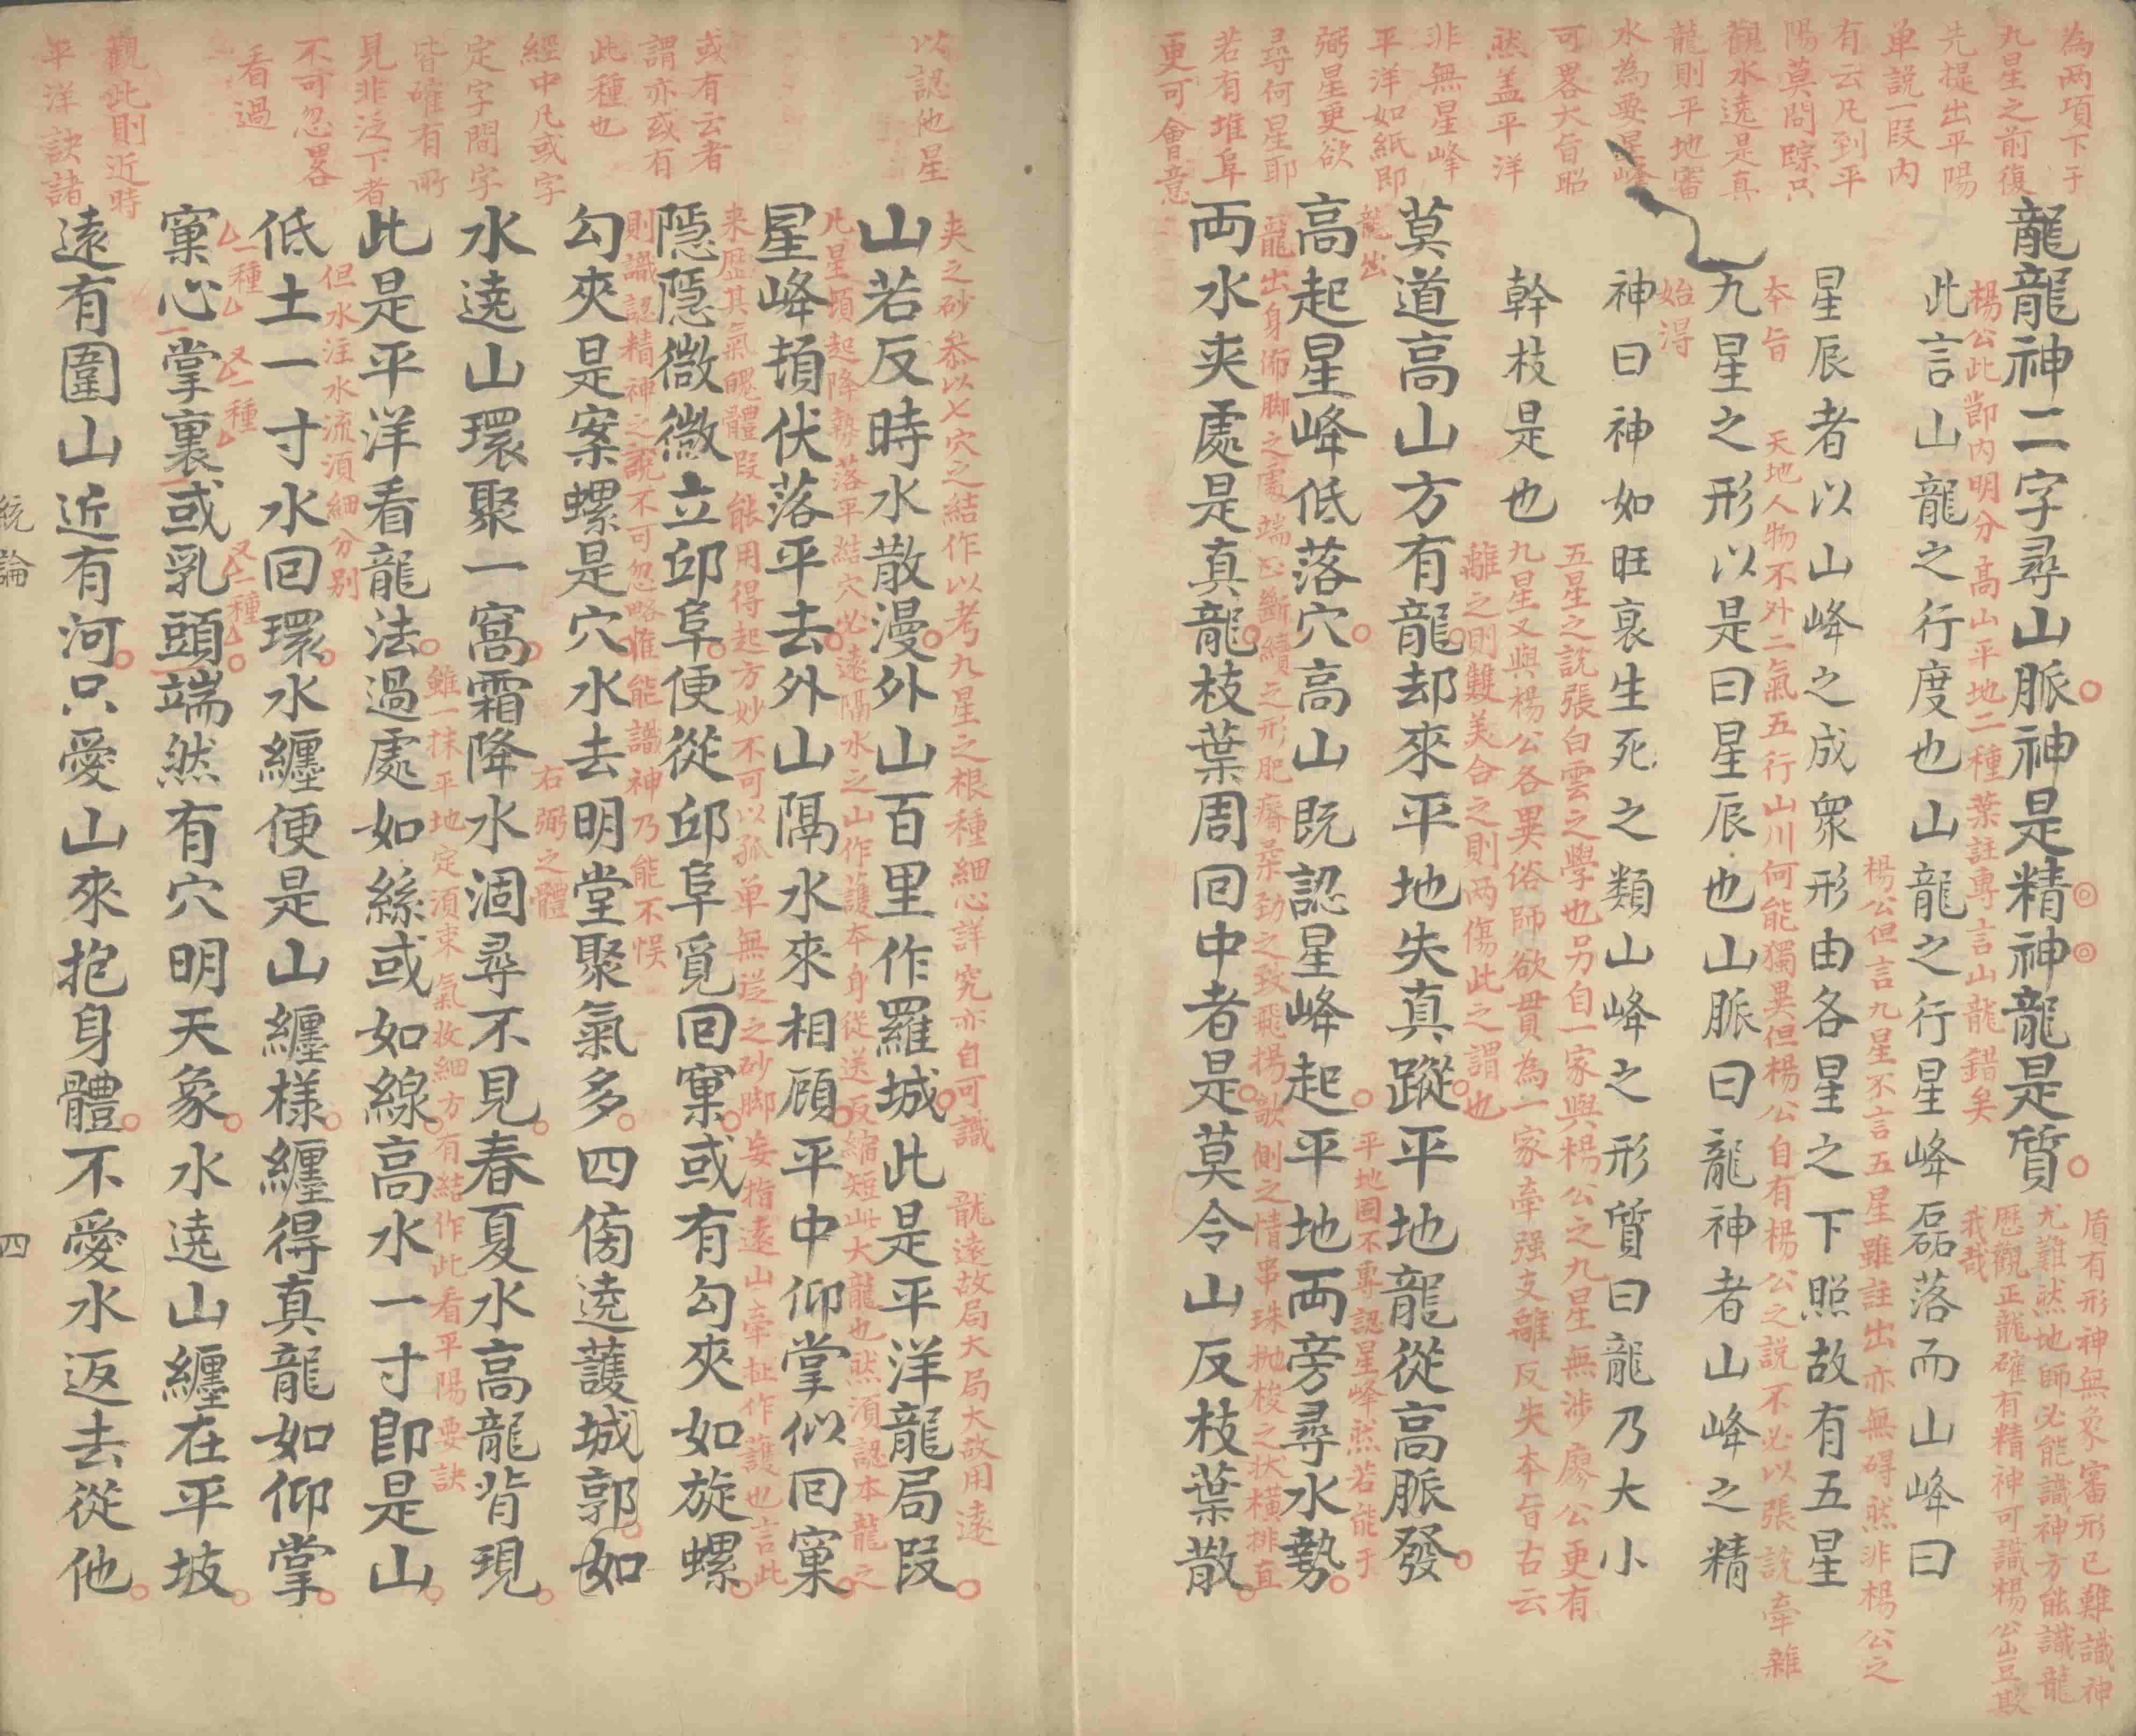 為兩項下于
九星之前復
先提出平陽
单說一段內
有云凡到平
陽莫問踪只
觀水遶是真
龍則平地審
水為要星峰
可畧大旨昭
然盖平洋
非無星峰
平洋如紙即
弼星更欲
尋何星耶
若有堆阜
更可會意
龍龍神二字尋山脈神是精神龍是質
盾有形神無象審形已難識神
尤難然地師必能識神方能識龍
歷觀正龍確有精神可識楊公豈欺
我哉
楊公此節內明分高山平地二種葉註專言山龍錯矣
此言山龍之行度也山龍之行星峰磊落而山峰曰
楊公但言九星不言五星雖註出亦無碍然非楊公之
本旨
星辰者以山峰之成衆形由各星之下照故有五星
天地人物不外二氣五行山川何能獨異但楊公自有楊公之説不必以張説牽雜
九星之形以是曰星辰也山脈曰龍神者山峰之精
始得
神曰神神如旺衰生死之類山峰之形質曰龍乃大小
幹枝是也
五星之説張白雲之學也另自一家與楊公之九星無涉廖公更有
九星又與楊公各異俗師欲貫為一家牽强支離反失本旨古云
離之則雙美合之則兩傷此之謂也
莫道高山方有龍却來平地失真蹤平地龍從高脈發
龍出
平地固不專認星峰然若能于
高起星峰低落穴高山既認星峰起平地兩旁尋水勢
龍出身佈脚之處端正斷續之形肥瘠柔劲之致飛揚欹側之情串珠抛梭之状橫排直
両水夹處是真龍枝葉周回中者是莫令山反枝葉散
以認他星
或有云者
謂亦或有
此種也
經中凡或字
定字間字
皆確有所
見非泛下者
不可忽畧
看過
觀此則近時
平洋訣諸
夹之砂叅以七穴之結作以考九星之根種細心詳究亦自可識
龍遠故局大局大故用遠
山若反時水散漫外山百里作羅城此是平洋龍局段
凡星頓起降勢落平結穴必遠隔水之山作護本身從送反縮短此大龍也然須認本龍之
星峰頓伏落平去外山隔水來相顧平中仰掌似回窠
来歷其氣魄體段能用得起方妙不可以孤单無送之砂脚妄指遠山牽扯作護也言此
隱隱微微立邱阜便從邱阜覓回窠或有勾夾如旋螺
則識認精神之說不可忽略惟能識神乃能不悮
勾夾是案螺是穴水去明堂聚氣多四傍遶護城郭如
右弼之體
水遶山環聚一窩霜降水涸尋不見春夏水高龍背現
雖一抹平地定須束氣收細方有結作此看平陽要訣
此是平洋看龍法過處如絲或如線高水一寸即是山
但水注水流須細分别
低土一寸水回環水纏便是山纏樣纏得真龍如仰掌
一種
又一種
又一種
窠心掌裏或乳頭端然有穴明天象水遶山纏在平坡
遠有圍山近有河只愛山來抱身體不愛水返去從他
統論
四